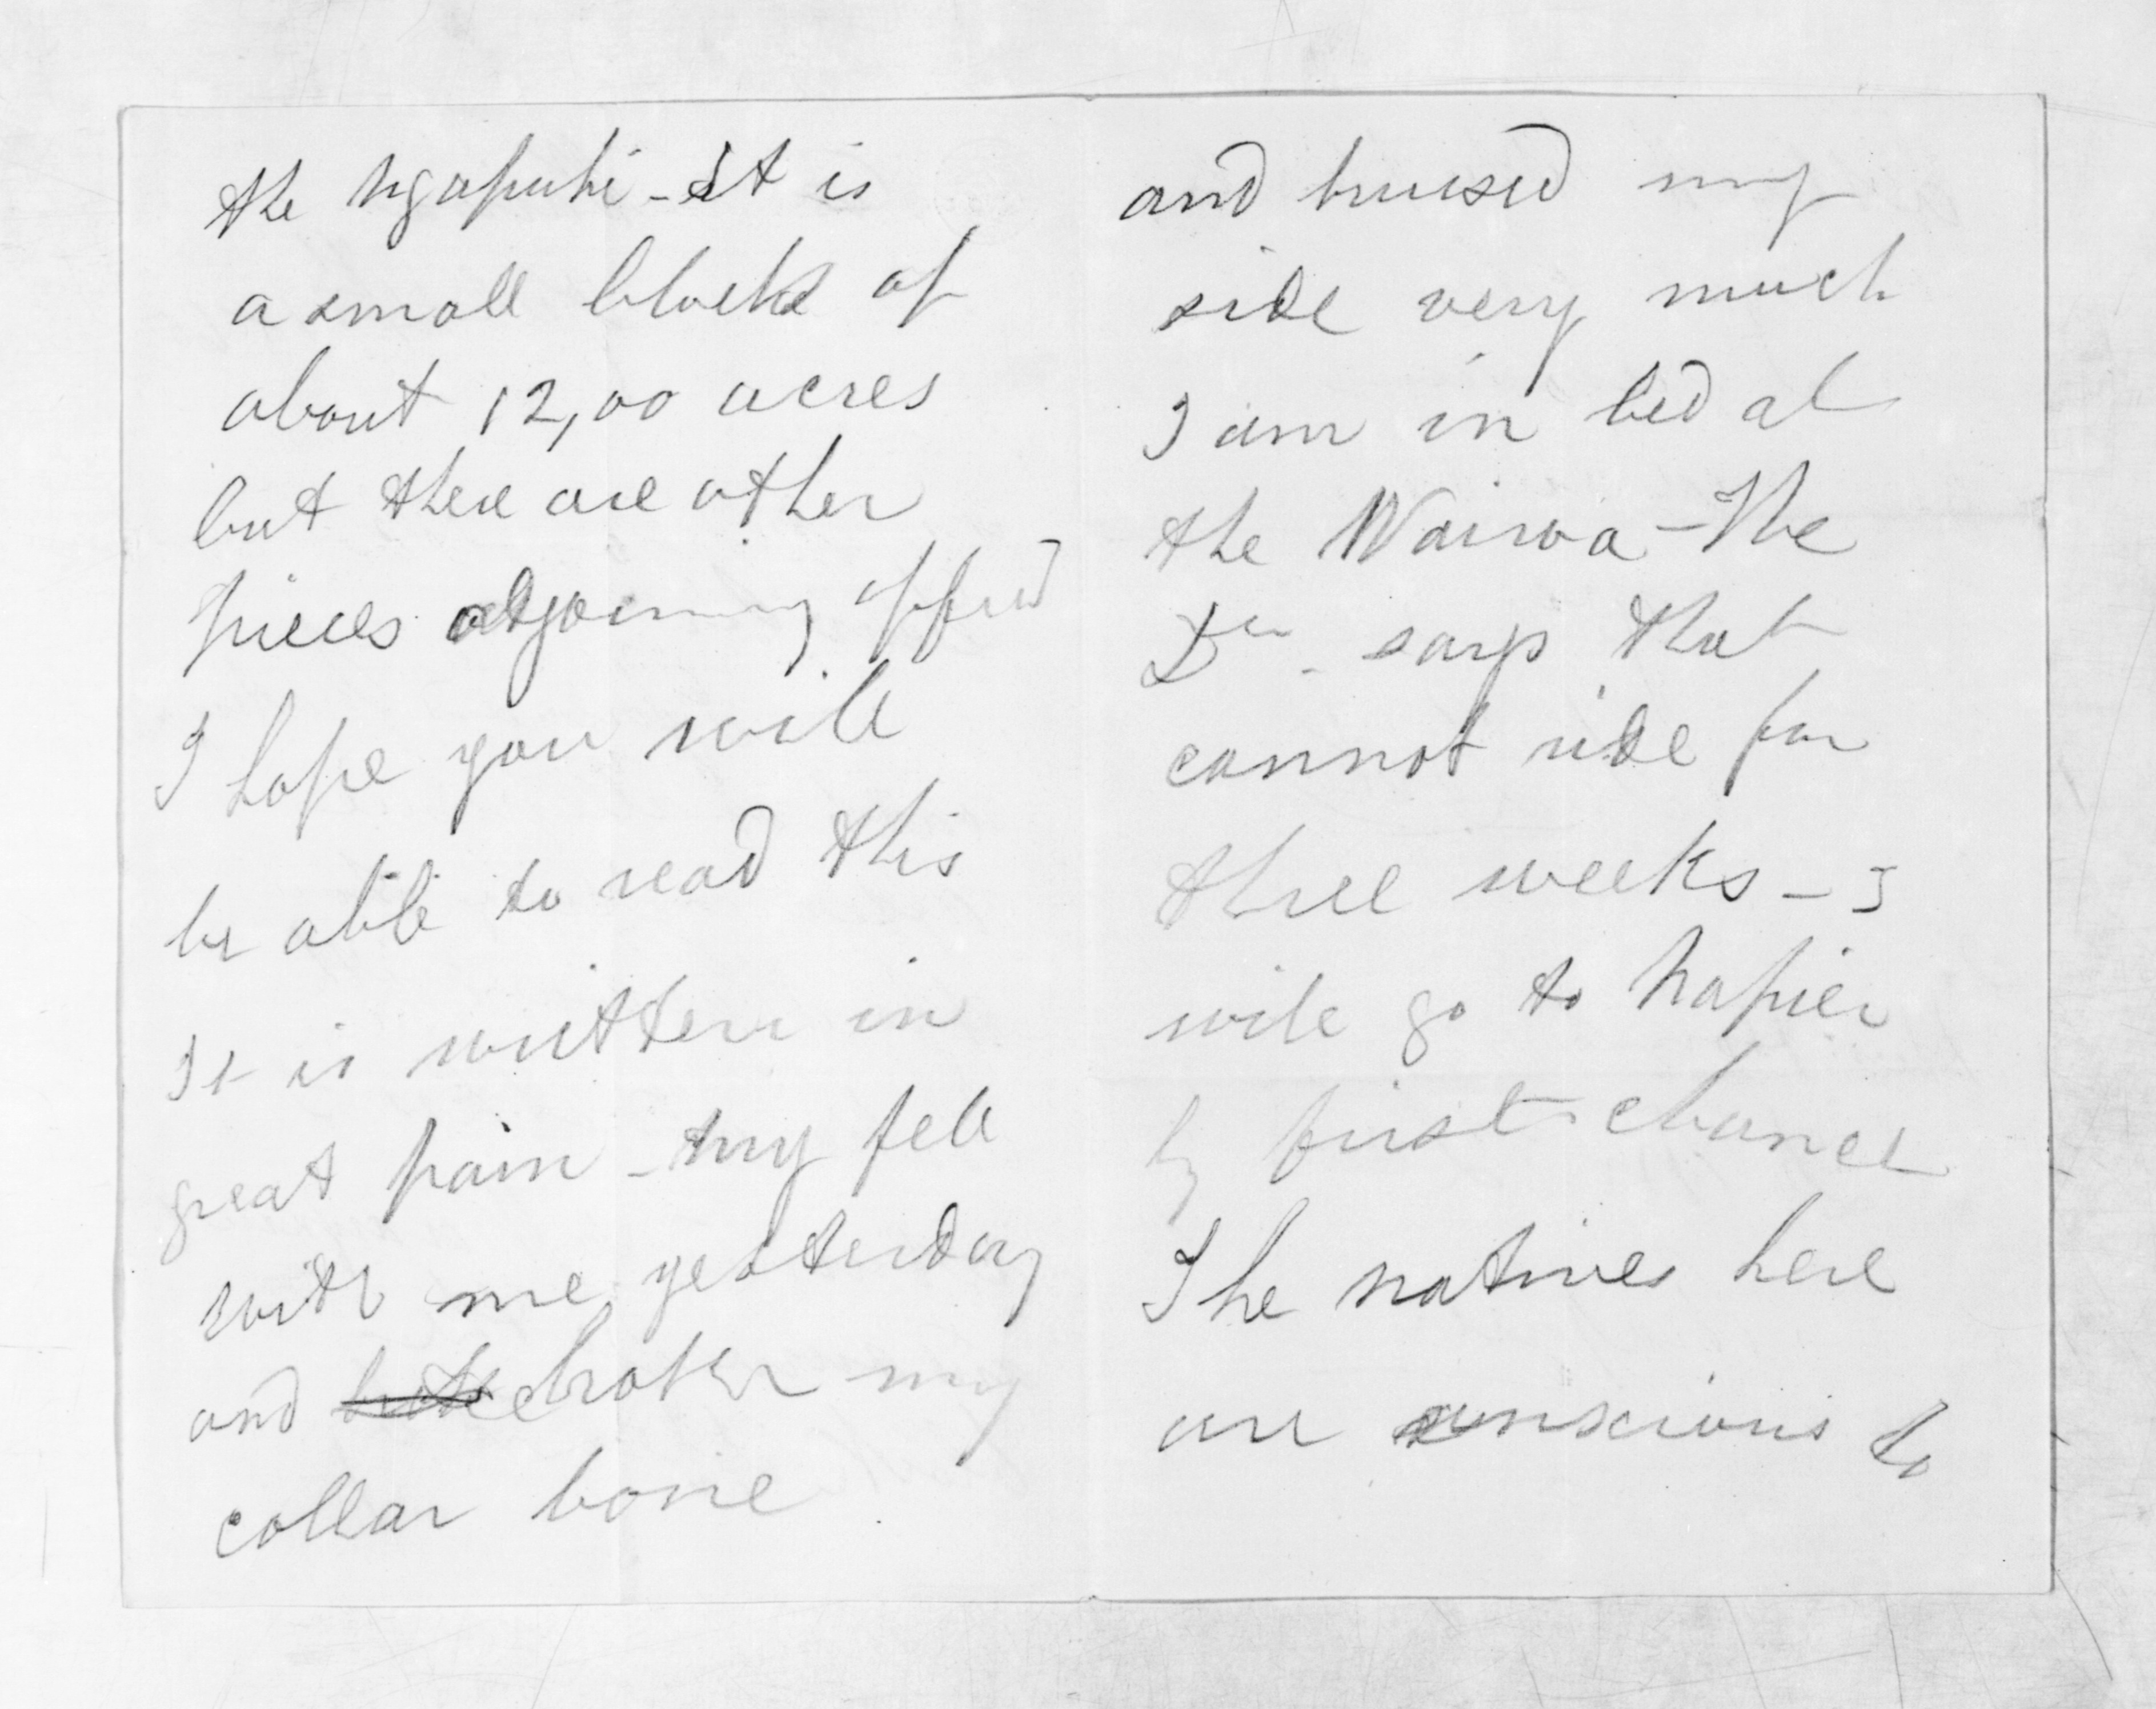 the Ngapuhi - it is
a small block of
about 12,00 acres
but there are other
pieces adjoining offered
I hope you will
be able to read this
It is written in
great pain - my fell
with me yesterday
and broken my
collar bone
and bruised my
side very much
I am in bed at
the Wairoa - The
Dr. says that
cannot ride for
three weeks - I
will go to Napier
by first chance
The natives here
are anxious to